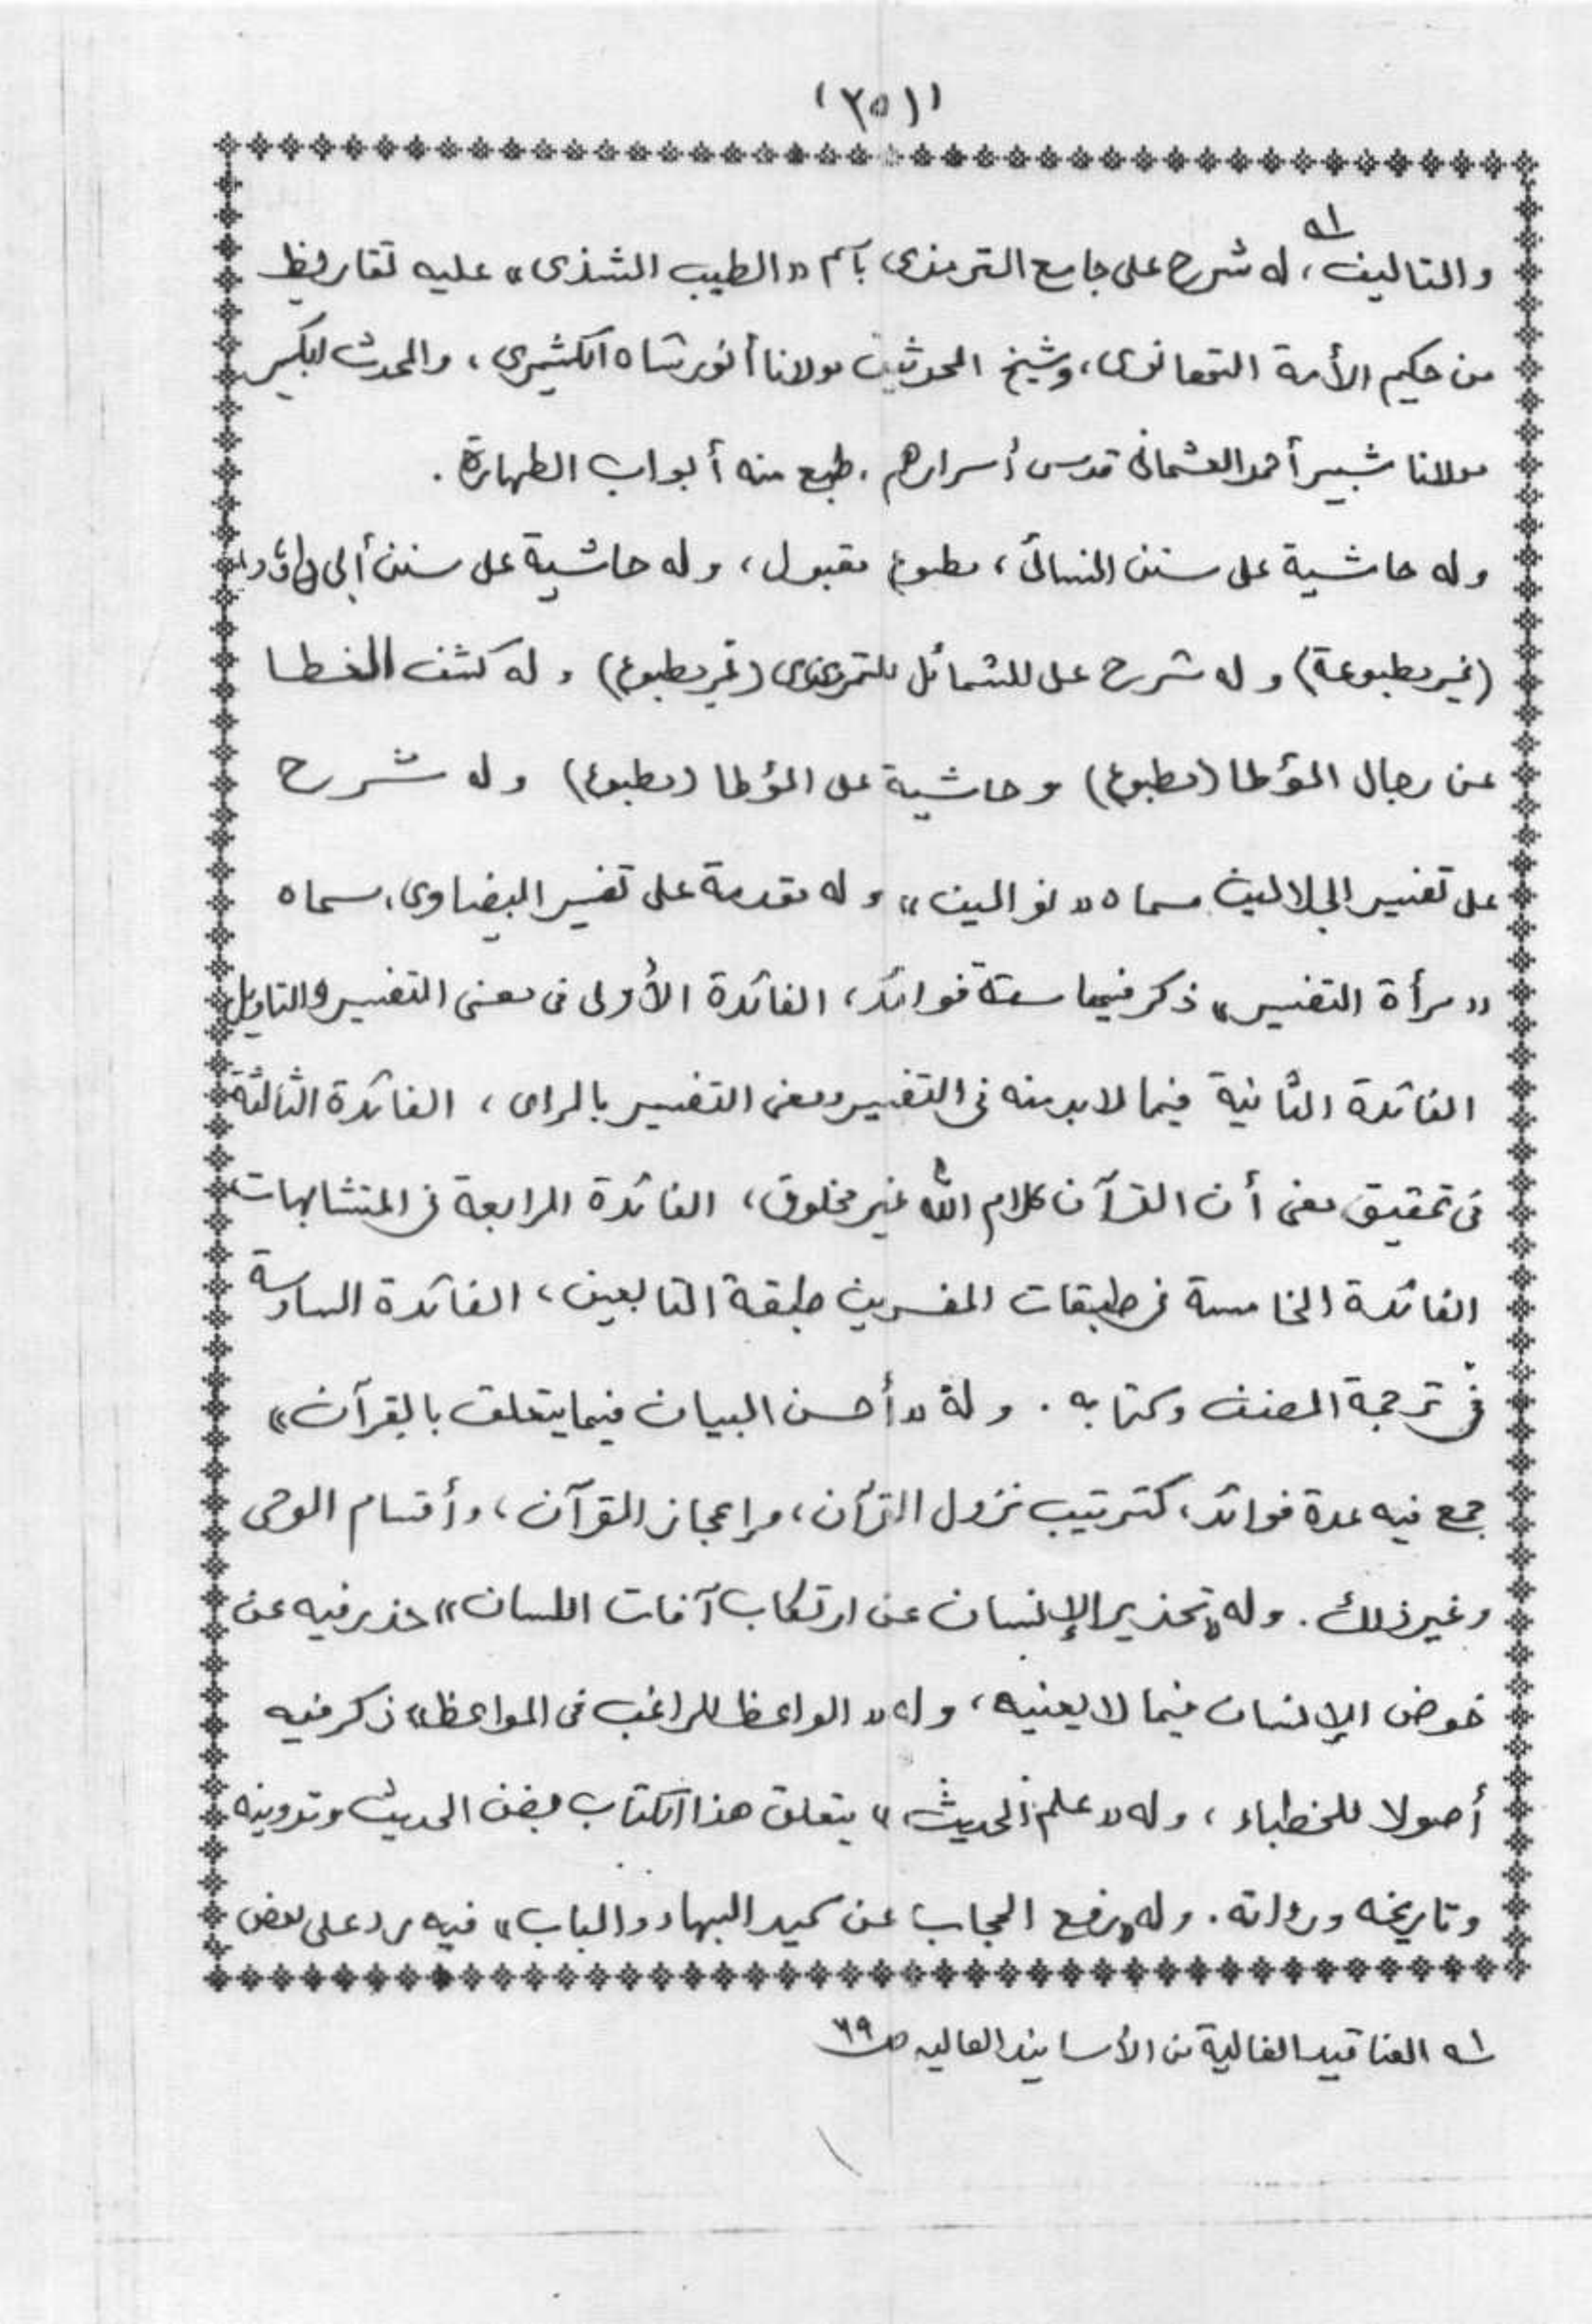 (٢٥١)
والتاليف ١ه، له شرح على جامع الترمذى بآسم «الطيب الشذى» عليه تقاريظ
من حكيم الأمة التهانوى، وشيخ المحدثين مولانا أنور شاه الكشميرى، والمحدث الكبير
مولانا شبير أحمد العثمانى قدس أسرارهم، طبع منه أبواب الطهارة.
وله حاشية على سنن النسائى، مطبوع مقبول، وله حاشية على سنن أبى داؤد
(غير مطبوعة) وله شرح على للشمائل للترمذى (غير مطبوع) وله كشف الغطا
عن رجال المؤطا (مطبوع) وحاشية على المؤطا (مطبوع) وله شرح
على تفسير الجلالين سماه «نو المين» وله مقدمة على تفسير البيضاوى، سماه
«مرأة التفسير» ذكر فيها ستة فوائد، الفائدة الأولى فى معنى التفسير والتاويل
الفائدة الثانية فيما لابد منه فى التفسير ومعنى التفسير بالراى، الفائدة الثالثة
فى تحقيق معنى أن القرآن كلام الله غير مخلوق، الفائدة الرابعة فى المتشابهات
الفائدة الخامسة فى طبقات المفسرين طبقة التابعين، الفائدة السادسة
فى ترجمة المصنف وكتابه. وله «أحسن البيان فيما يتعلق بالقرآن»
جمع فيه عدة فوائد، كترتيب نزول القرأن، وإعجاز القرآن، وأقسام الوحى
وغير ذلك. وله «تحذير الإنسان عن ارتكاب آفات اللسان» حذر فيه عن
خوض الإنسان فيما لا يعنيه، وله «الواعظ للراغب فى المواعظ» ذكر فيه
أصولا للخطباء، وله «علم الحديث» يتعلق هذا الكتاب بفن الحديث وتدوينه
وتاريخه ورواته. وله «رفع الحجاب عن كيد البهاء والباب» فيه رد على بعض
١ه العناقيد الغالية من الأسانيد العاليه ص ٦٩